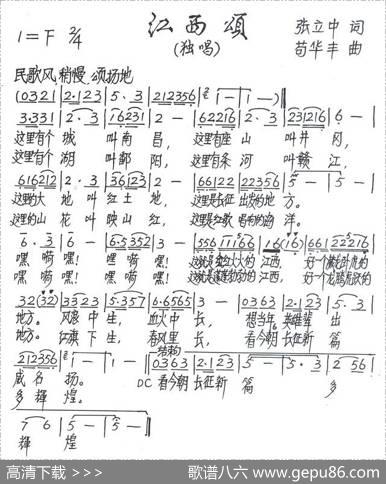 江西颂
(独唱)
1=F 2/4
张立中 词
苟华丰 曲
民歌风 稍慢 颂扬地
(0321 | 2·123 | 5·3 | 212356 | 1 — | 1 —) ||
3·331 | 2·3 | 16231 | 2 — | 62216 | 2·3 | 231216 | 6 — |
这里有个 城 叫南 昌, 这里有座 山 叫井 冈,
这里有个 湖 叫鄱 阳, 这里有条 河 叫赣 江,
616212 | 2·3 | 36123 | 2 — | 66122 | 223556 | 5 — | 5 — |
这里的大 地 叫红土 地, 这里是长征 出发的地 方。
这里的山 花 叫映山 红, 这里是红歌 唱响的海 洋。
6·3 | 6 — | 6·5352 | 3 —
嘿 嗬 嘿! 嘿 嗬 嘿! 的江西, 好一个
嘿 嗬 嘿! 嘿 嗬 嘿! 的江西, 好一个
32(32) | 3323 | 5·357 | 6·6565 | 3 — | 0363 | 2·123 | 5·3 |
地方。 风浪 中 生, 血火中 长, 想当年 英雄辈 出
地方。 红旗 下 生, 春风里 长, 看今朝 长征新 篇
结束句
212356 | 1 — | 1 — | 0363 | 2·123 | 5 — | 5·3 | 2 56 |
威名 扬。 DC 看今朝 长征新 篇 多
多辉 煌。
1 6 | 5 — | 5 — ||
辉 煌
高清下载 >>>
歌谱八六 www.gepu86.com